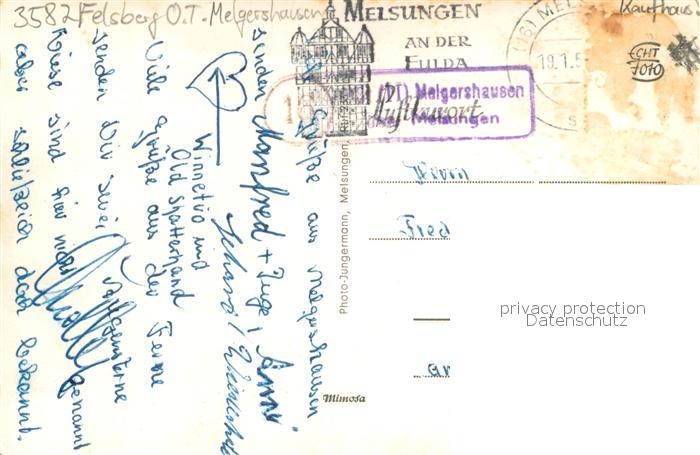 3582 Felsberg O.T. Melgershausen
Kaufhaus
MELSUNGEN
AN DER
FULDA
Luftkurort
(16) MEL
19.1.5
ECHT
7010
Melgershausen
Melsungen
Grüße aus Melgershausen
senden Manfred + Inge
Winnetou und
Old Shatterhand
Viele Grüße aus der Ferne
senden Dir zwei
Diese sind hier nicht genannt
aber schließlich doch bekannt.
Photo-Jungermann, Melsungen
Mimosa
Herrn
Fied
an
privacy protection
Datenschutz